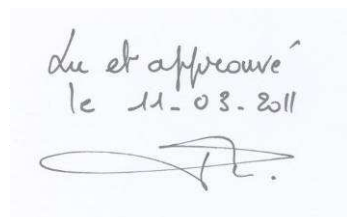 Lu et approuvé
le 11-03-2011